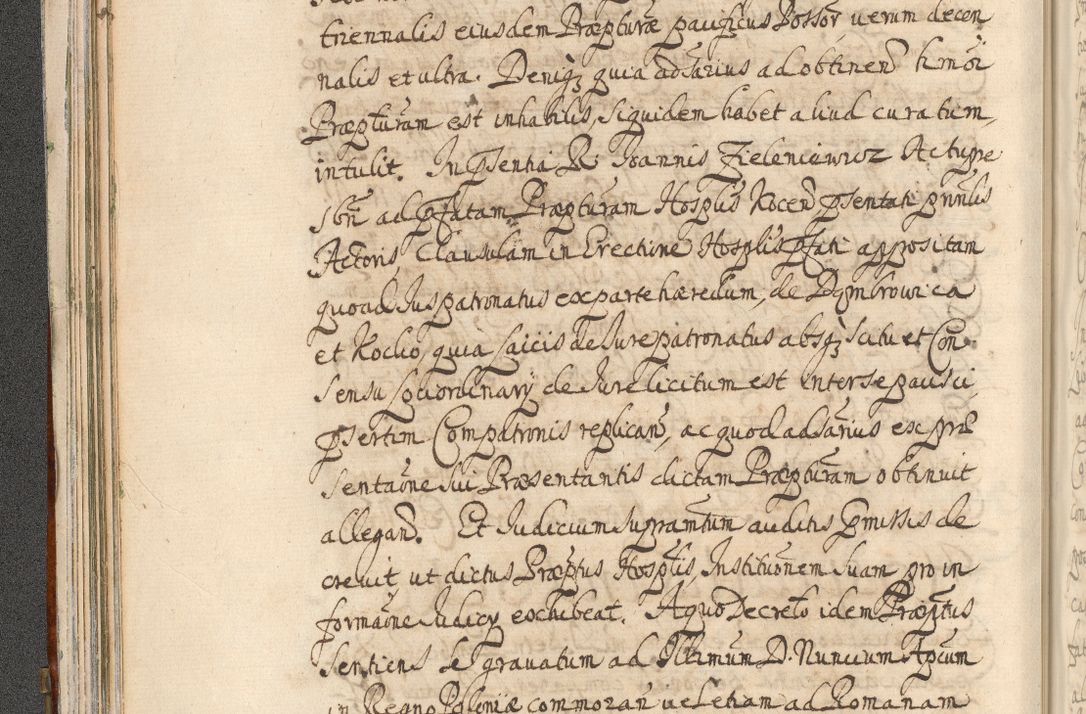 triennalis eiusdem Præpturæ pacificus Possor, uerum decen
nalis et ultra. Deniq; quia adsarius ad obtinen hmoi
Præpturam est inhabilis, siquidem habet aliud curatum,
intulit. In psentia R. Joannis Zieleniewicz Actu pre
sbri ad pfatam Præpturam Hosplis Kocen psentati prinlis
Actoris Clausulam in Erectione Hosplis pfati appositam
quoad Juspatronatus ex parte hæredum, de Dombrowica
et Kocko, quia laicis de Jurepatronatus absq; scitu et Con
sensu loci ordinarij de Jure licitum est inter se pacisci
psertim Compatronis replican, ac quod adsarius ex præ
sentaone sui Præsentantis dictam Præpturam obtinuit
allegan. Et Judicium supramtum auditis pmissis de
creuit, ut dictus Præptus Hosplis, Institutionem suam pro in
formaone Judicij exhibeat. A quo Decreto idem Præptus
sentiens se grauatum ad Illmum D. Nuncium Aplcum
in Regno Poloniæ commoran uel etiam ad Romanam